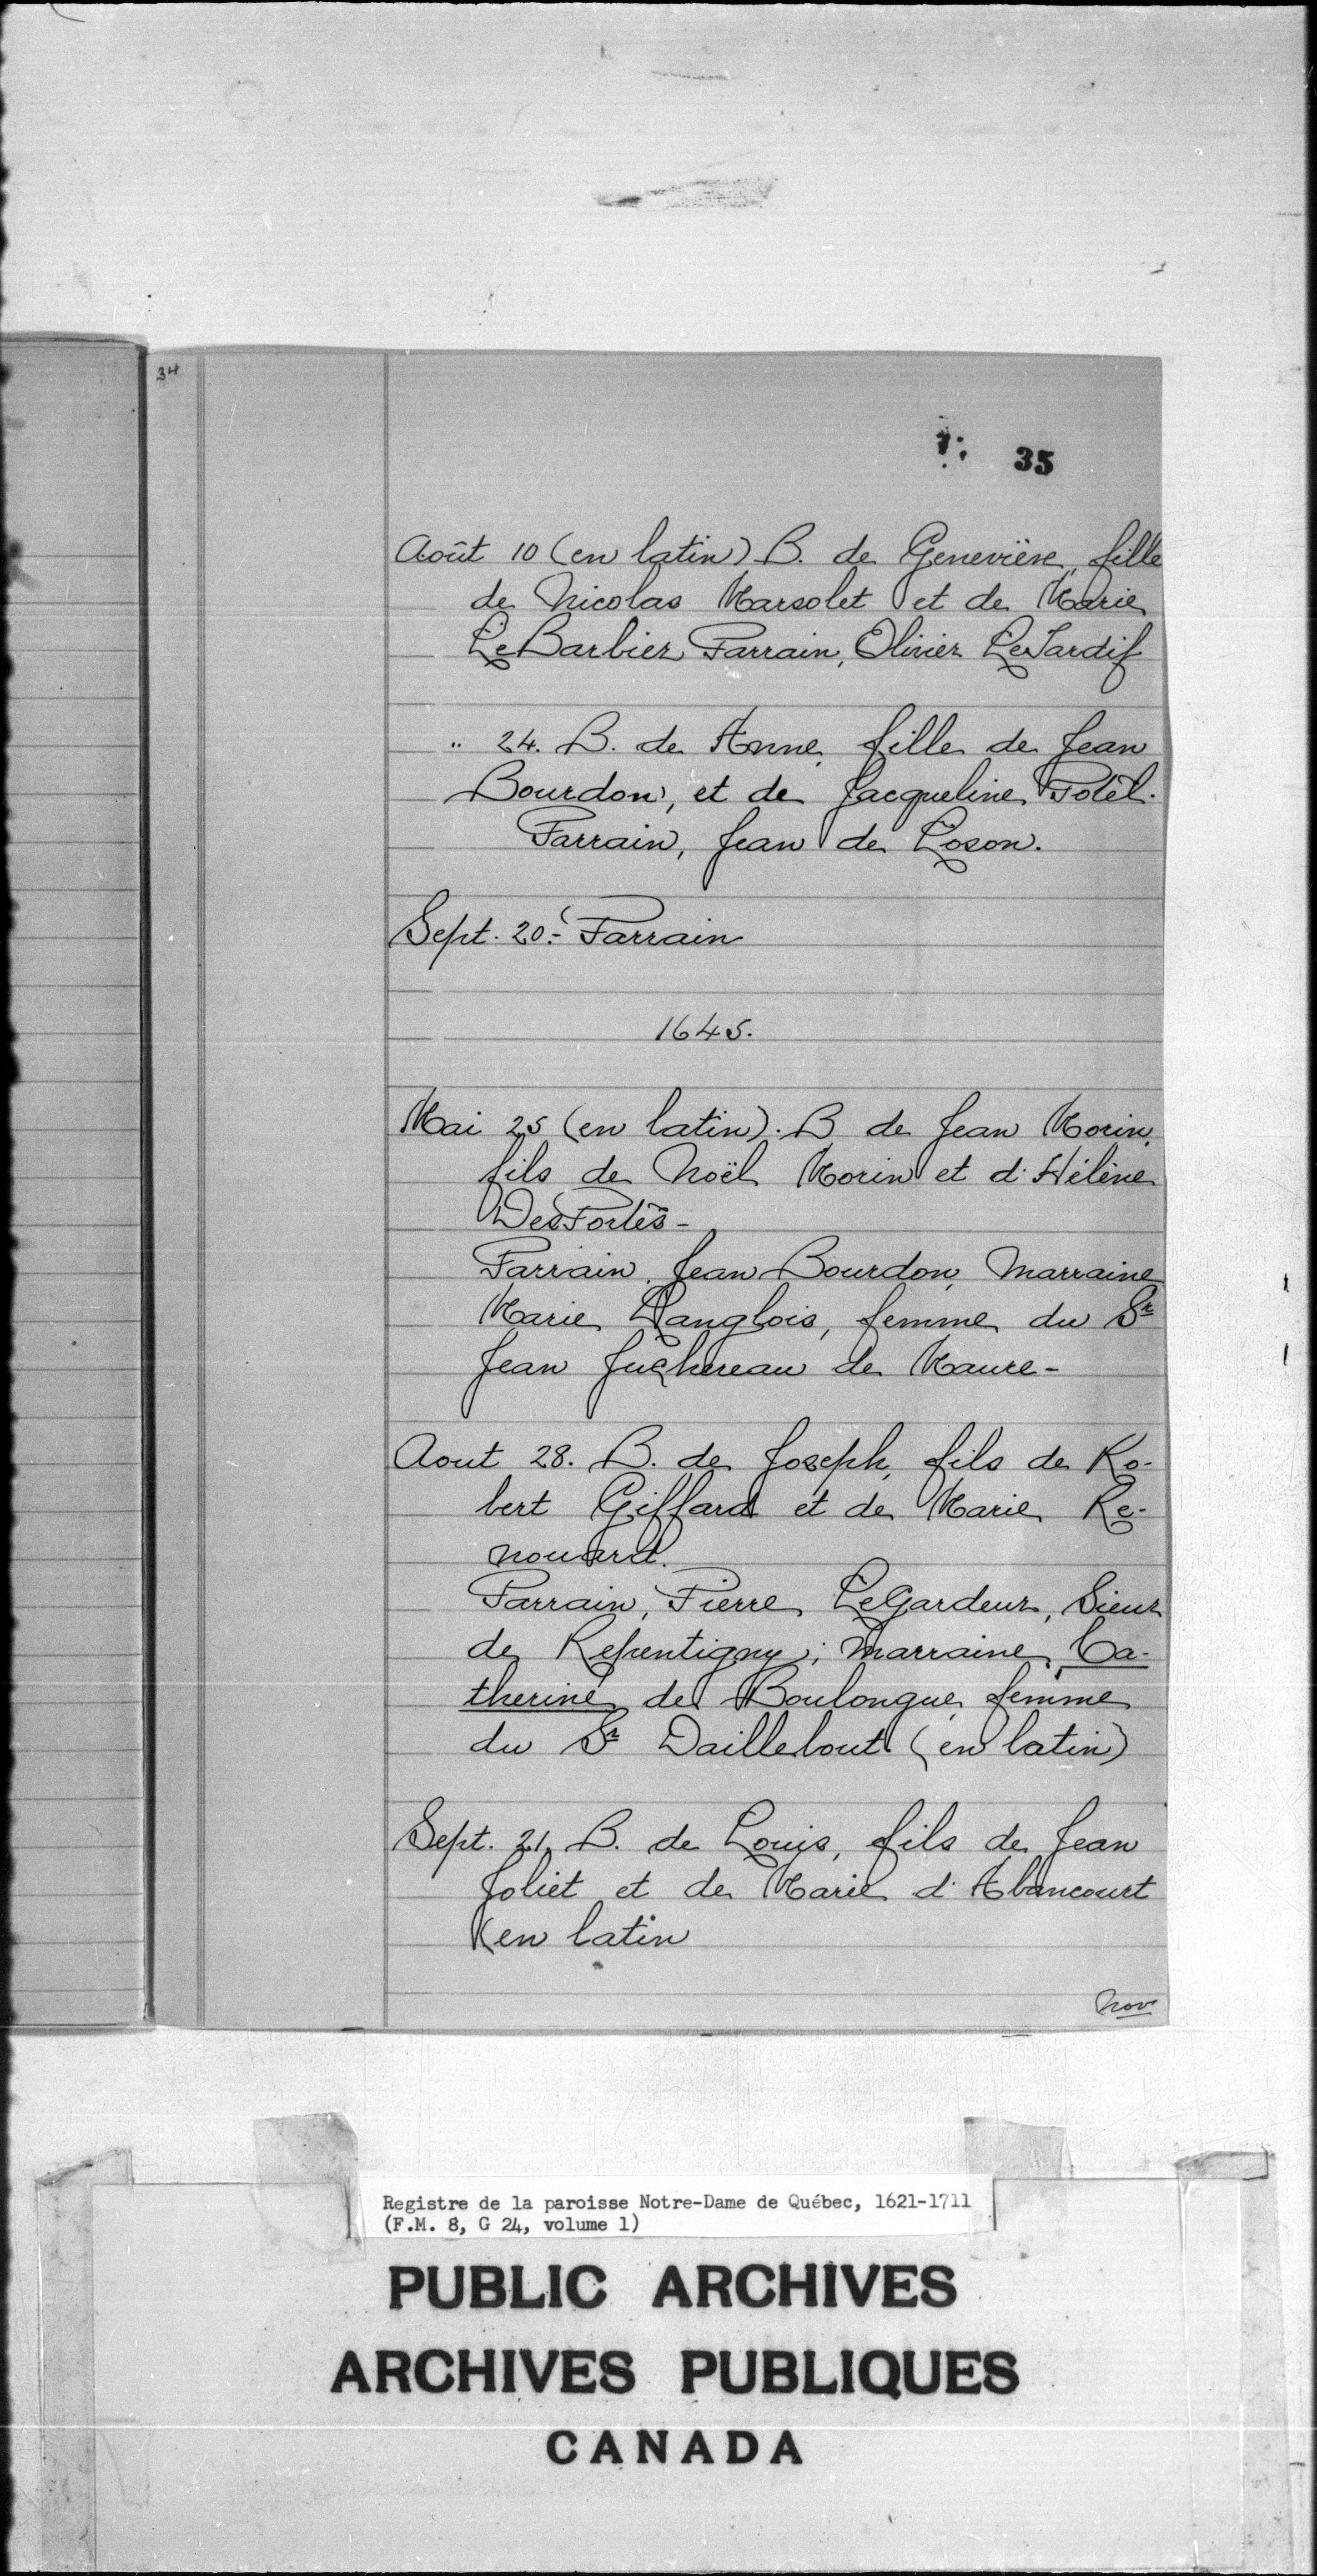 34
35
Août 10 (en latin) B. de Geneviève, fille
de Nicolas Marsolet et de Marie
LeBarbier Parrain, Olivier LeTardif
" 24. B. de Anne, fille de Jean
Bourdon, et de Jacqueline Potel.
Parrain, Jean de Loson.
Sept. 20.- Parrain
1645.
Mai 25 (en latin). B de Jean Morin,
fils de Noël Morin et d'Hélène
DesPortes -
Parrain, Jean Bourdon, Marraine
Marie Langlois, femme du Sr
Jean Juchereau de Maure -
Aout 28. B. de Joseph, fils de Ro-
bert Giffard et de Marie Re-
nouard.
Parrain, Pierre LeGardeur, Sieur
de Repentigny; Marraine, Ca-
therine de Boulongue femme
du Sr Daillebout (en latin)
Sept. 21, B. de Louis, fils de Jean
Joliet et de Marie d'Abancourt
(en latin
Nov
Registre de la paroisse Notre-Dame de Québec, 1621-1711
(F.M. 8, G 24, volume 1)
PUBLIC ARCHIVES
ARCHIVES PUBLIQUES
CANADA